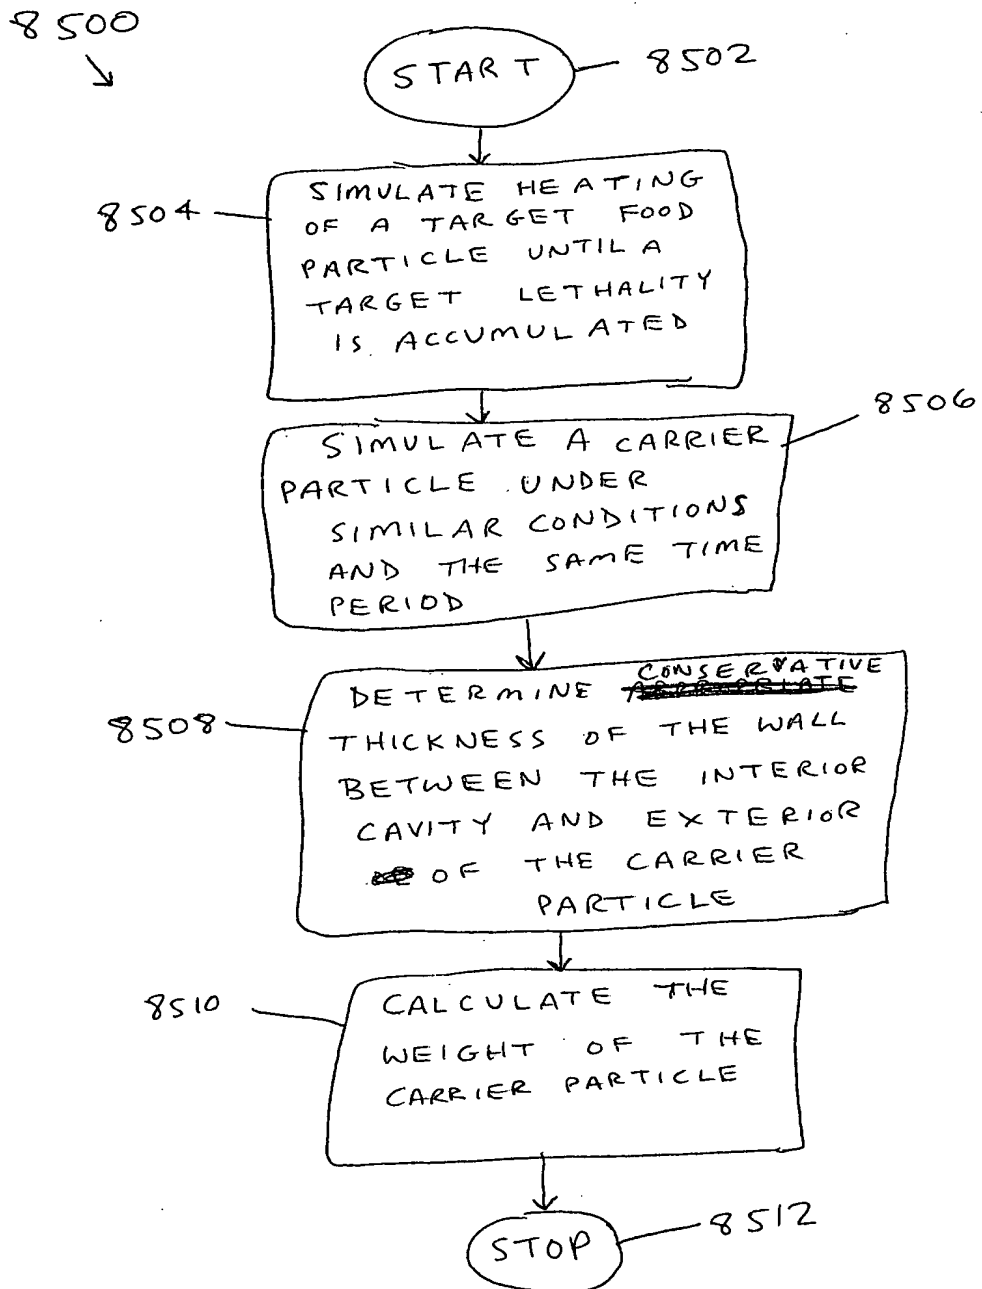 8500
START
8502
SIMULATE HEATING
OF A TARGET FOOD
PARTICLE UNTIL A
TARGET LETHALITY
IS ACCUMULATED
8504
SIMULATE A CARRIER
PARTICLE UNDER
SIMILAR CONDITIONS
AND THE SAME TIME
PERIOD
8506
CONSERVATIVE
DETERMINE APPROPRIATE
THICKNESS OF THE WALL
BETWEEN THE INTERIOR
CAVITY AND EXTERIOR
OF THE CARRIER
PARTICLE
8508
CALCULATE THE
WEIGHT OF THE
CARRIER PARTICLE
8510
STOP
8512